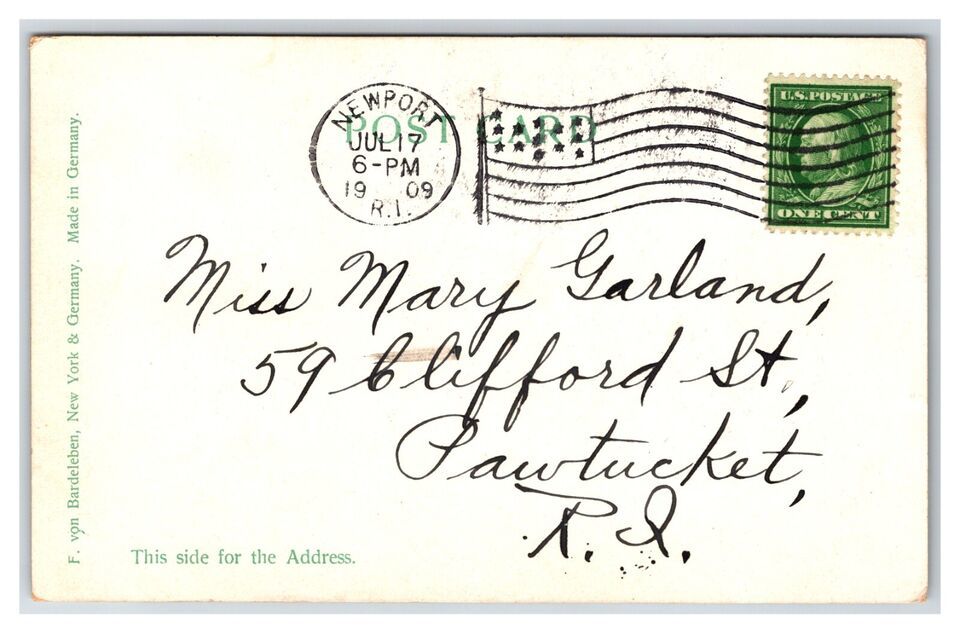 NEWPORT
JUL 17
6-PM
19 09
R.I.
POST CARD
U.S. POSTAGE
ONE CENT
Miss Mary Garland,
59 Clifford St.,
Pawtucket,
R. I.
This side for the Address.
F. von Bardeleben, New York & Germany. Made in Germany.